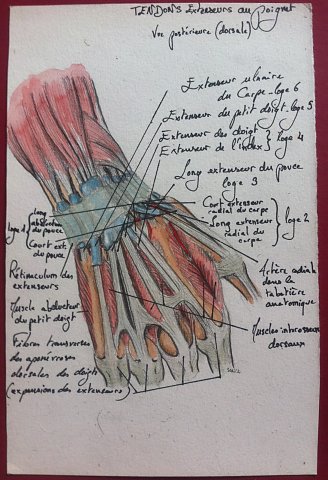 TENDONS Extenseurs au poignet
Vue postérieure (dorsale)
Extenseur ulnaire
du Carpe - loge 6
Extenseur du petit doigt - loge 5
Extenseur des doigts
Extenseur de l'index
loge 4
Long extenseur du pouce
loge 3
Court extenseur
radial du carpe
Long extenseur
radial du
carpe
loge 2
Long
abducteur
du pouce
loge 1
Court ext.
du pouce
Artère radiale
dans la
tabatière
anatomique
Rétinaculum des
extenseurs
Muscle abducteur
du petit doigt
Muscles interosseux
dorsaux
Fibres transverses
des aponévroses
dorsales des doigts
(expansions des extenseurs)